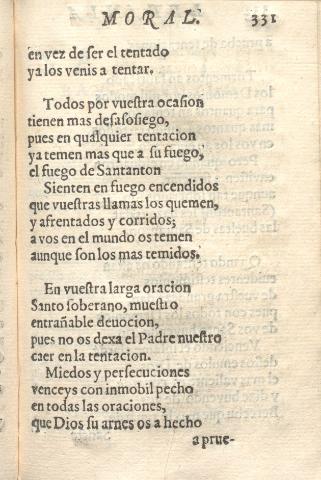 MORAL. 331
en vez de ser el tentado
ya los venis a tentar.
Todos por vuestra ocasion
tienen mas desasosiego,
pues en qualquier tentacion
ya temen mas que a su fuego,
el fuego de Santanton
Sienten en fuego encendidos
que vuestras llamas los quemen,
y afrentados y corridos;
a vos en el mundo os temen
aunque son los mas temidos.
En vuestra larga oracion
Santo soberano, muestro
entrañable deuocion,
pues no os dexa el Padre nuestro
caer en la tentacion.
Miedos y persecuciones
venceys con inmobil pecho
en todas las oraciones,
que Dios su arnes os a hecho
a prue-